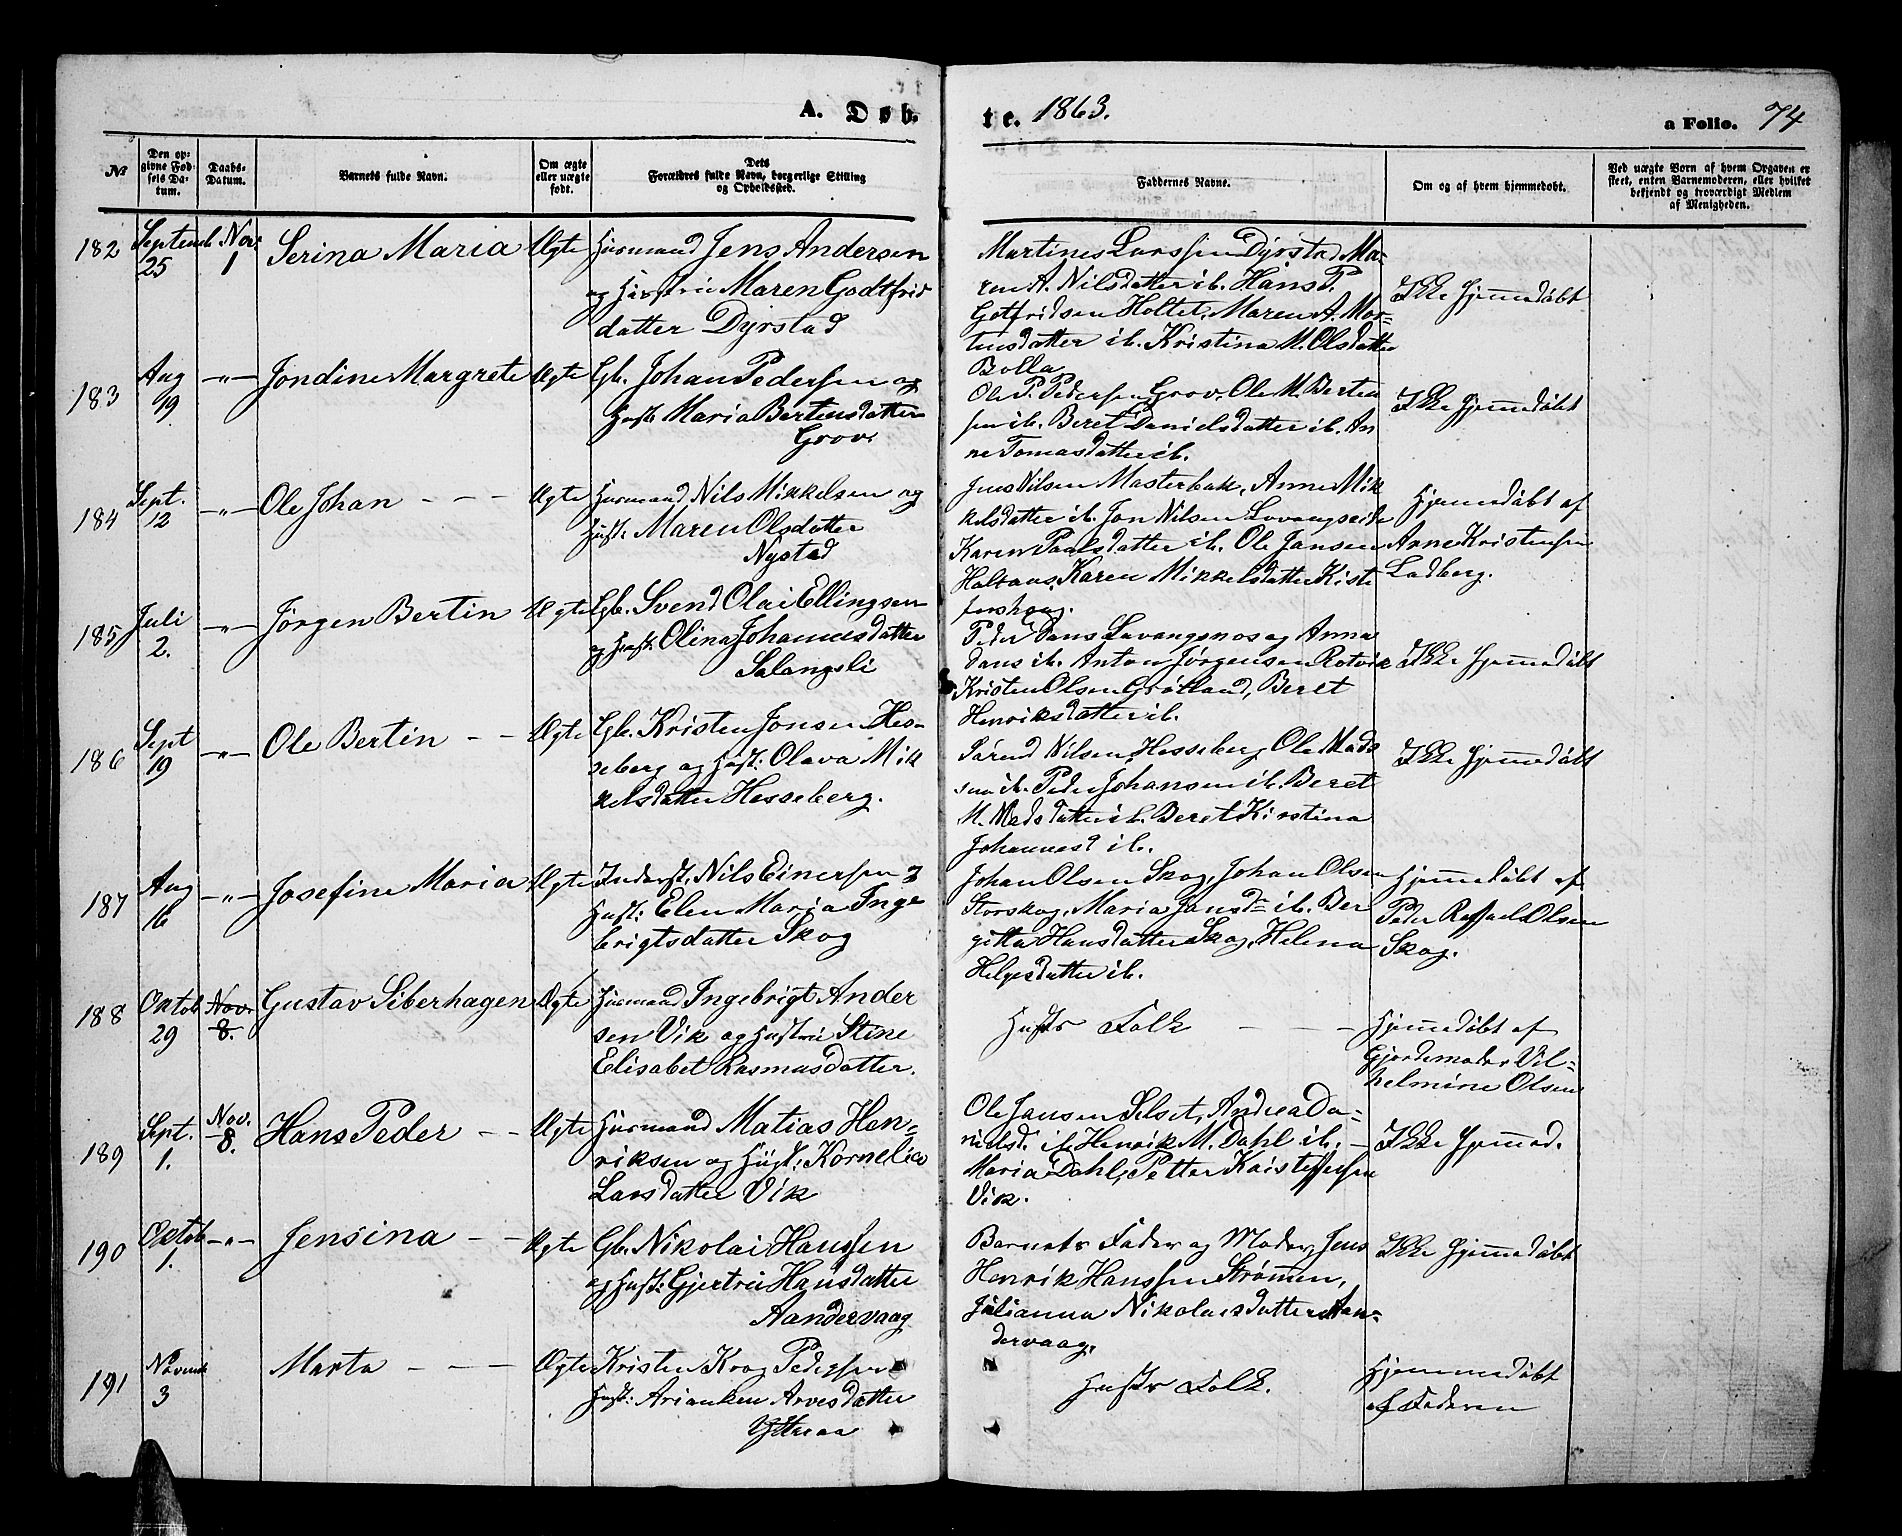 A. Døb-
te. 1863.
a Folio. 74
№
Den op-
givne Fød-
sels Da-
tum.
Daabs-
Datum.
Barnets fulde Navn.
Om ægte
eller uægte
født.
Dets
Forældres fulde Navn, borgerlige Stilling
og Opholdssted.
Faddernes Navne.
Om og af hvem hjemmedøbt.
Ved uægte Born af hvem Opgaven er
skeet, enten Barnemoderen, eller hvilket
bekjendt og troværdigt Medlem
af Menigheden.
182 Septemb 25 Nov: 1 Serina Maria Ægte Husmand Jens Andersen
og Hustru Maren Godtfrids
datter Dyrstad
Martines Larssen Dyrstad, Ma-
ren A. Nilsdatter ib. Hans P.
Gotfridsen Holtet, Maren A. Mor-
tensdatter ib. Kristina M. Olsdatter
Bolla
Ikke Hjemmedøbt
183 Aug 19 -"- Jondine Margrete Ægte Gb. Johan Pedersen og
Hust: Maria Bertensdatter
Grov.
Ole P. Pedersen Grov, Ole M. Berten
sen ib. Beret Danielsdatter ib. An
ne Tomasdatter ib.
Ikke Hjemmedøbt
184 Sept. 12 -"- Ole Johan - - - Ægte Husmand Nils Mikkelsen og
Hust: Maren Olsdatter
Nystad
Jens Nilsen Masterbak, Anne Mik
kelsdatter ib. Jon Nilsen Lovangseide
Karen Paalsdatter ib. Ole Jansen
Haltaas, Karen Mikkelsdatter Kiste
forshaug.
Hjemmedøbt af
Arne Kristensen
Ladberg.
185 Juli 2. -"- Jørgen Bertin Ægte Gb. Svend Olai Ellingsen
og Hust: Olina Johannesdatter
Salangsli
Peder Dans Lavangsnos og Anna
Dans ib. Anton Jørgensen Rotvik
Kristen Olsen Grøtland, Beret
Henriksdatter ib.
Ikke Hjemmedøbt
186 Sept 19 -"- Ole Bertin - - Ægte Gb. Kristen Jonsen Hes-
seberg og Hust: Olava Mik
kelsdatter Hesseberg.
Sørend Nilsen Hesseberg, Ole Mads
sen ib. Peder Johansen ib. Beret
M. Madsdatter ib. Beret Kirstina
Johannesd ib.
Ikke Hjemmedøbt
187 Aug 16 -"- Josefine Maria Ægte Inderst, Nils Einersen og
Hust: Elen Maria Inge
brigtsdatter Skog
Johan Olsen Skog, Johan Olsen
Storskog, Maria Jansd. ib. Ber
gitta Hansdatter Skog, Helena
Helgesdatter ib.
Hjemmedøbt af
Peder Rafael Olsen
Skog.
188 Oktob 29 Nov. 8. Gustav Siberhagen Ægte Husmand Ingebrigt Ander
sen Vik og Hustru Stine
Elisabet Rasmusdatter.
Husets Folk - - -
Hjemmedøbt af
Gjordemoder Vil-
helmine Olsen
189 Sept. 1. Nov. 8. Hans Peder - - Ægte Husmand Matias Hen-
riksen og Hust: Kornelia
Larsdatter Vik
Ole Jansen Selset, Andrea Da-
nielsd. ib. Henrik M. Dahl ib. -
Maria Dahl, Petter Kristensen
Vik.
Ikke Hjemmed.
190 Oktob 1. -"- Jensina - - Ægte Gb. Nikolai Hanssen
og Hust: Gjertrú Hansdatter
Aandervaag
Barnets Fader og Moder, Jens
Henrik Hanssen Strømmen,
Julianna Nikolaisdatter Aan-
dervaag.
Ikke Hjemmedøbt
191 Novemb 3 Marta - - - Ægte Kristen Krog Pedersen
Hust: Arianken Arvesdatter
Yttreaa
Husets Folk.
Hjemmedøbt
af Faderen